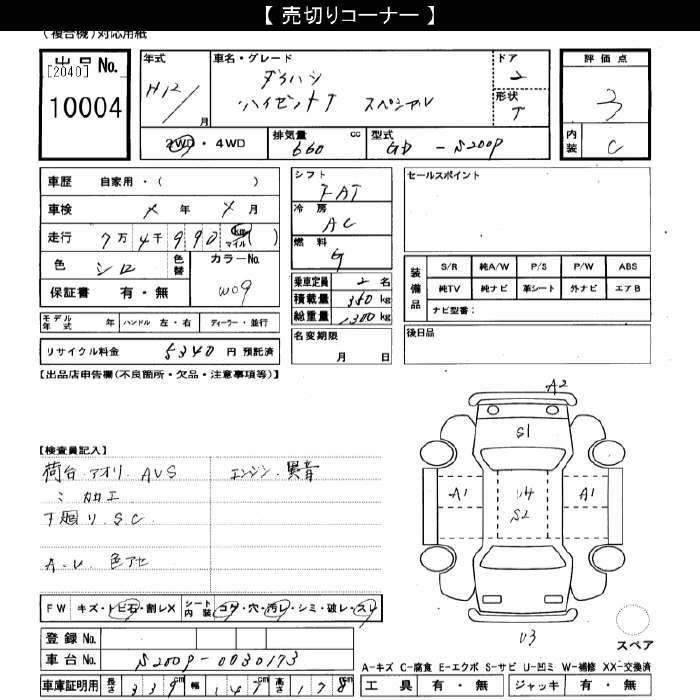 【 売切りコーナー 】
(複合機)対応用紙
出品 No.
[2040]
10004
年式
H12/
月
車名・グレード
ダイハツ
ハイゼットT スペシャル
ドア
2
形状
T
2WD・4WD
排気量 cc
660
型式
GD - S200P
評価点
3
内装
C
車歴 自家用・( )
車検 × 年 × 月
走行 7万4千990 km マイル ( )
色 シロ
色替
カラーNo.
W09
保証書 有・無
モデル年式 年 ハンドル 左・右 ディーラー・並行
リサイクル料金 5340 円 預託済
シフト
FAT
冷房
AC
燃料
G
乗車定員 2 名
積載量 350 kg
総重量 1300 kg
名変期限
月 日
セールスポイント
装備品
S/R 純A/W P/S P/W ABS
純TV 純ナビ 革シート 外ナビ エアB
ナビ型番:
後日品
【出品店申告欄(不良箇所・欠品・注意事項等)】
【検査員記入】
荷台.アオリ.AUS
エンジン.異音
ミ カ加工
下廻り.S.C
A-U.色アセ
A2
S1
A1
U4
S2
A1
U3
FW キズ・トビ石・割レX シート内装 コゲ・穴・汚レ・シミ・破レ・スレ
登録 No.
車台 No. S200P-0030173
スペア
A-キズ C-腐食 E-エクボ S-サビ U-凹ミ W-補修 XX-交換済
車庫証明用 長さ 339 cm 幅 147 cm 高さ 178 cm
工具 有・無 ジャッキ 有・無